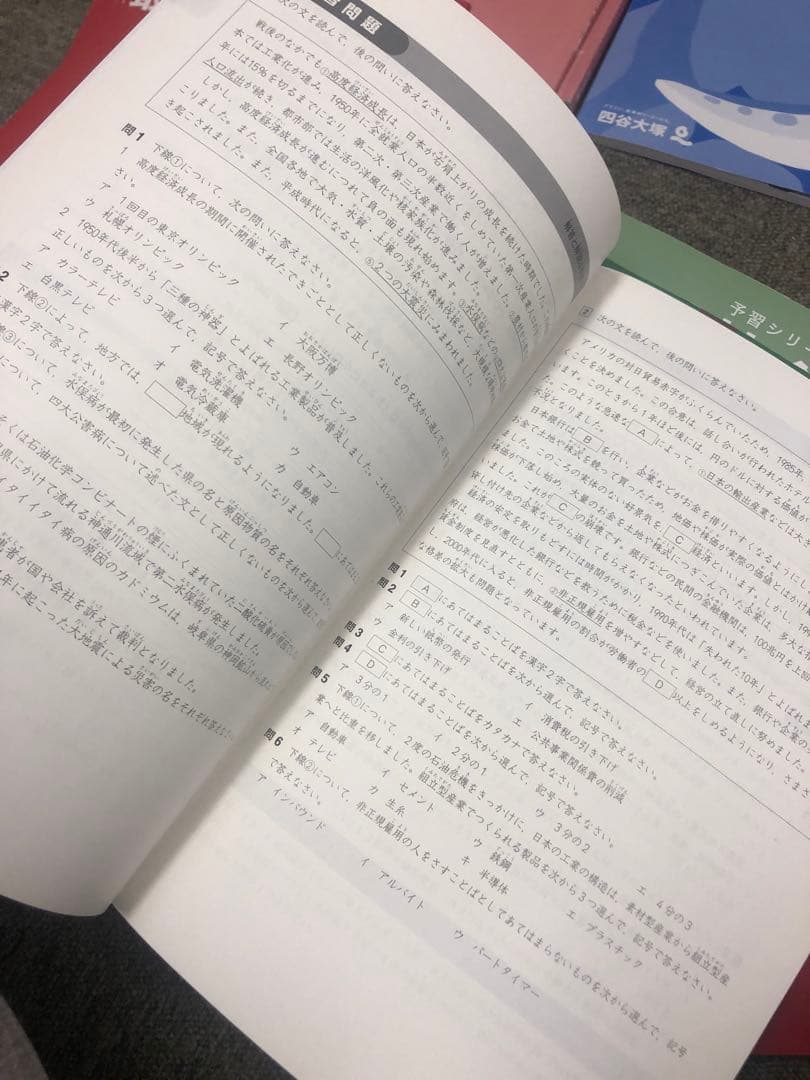 習問題
次の文を読んで、後の問いに答えなさい。
戦後のなかでも①高度経済成長は、日本が右肩上がりの成長を続けた時期でした。
本では工業化が進み、1950年に全就業人口の半数近くをしめていた第一次産業人口
年には15%を切るまでになり、第二次・第三次産業で働く人が増えました。
人口流出が続き、都市部では生活の洋風化や核家族化が進みました。
しかし、高度経済成長が進むにつれて負の面も現れます。
こりました。また、全国各地で大気・水質・土壌の汚染や森林伐採など、
き起こされました。また、平成時代になると、⑤2つの大震災にみまわれました。
問1 下線①について、次の問いに答えなさい。
1 高度経済成長の期間に開催されたできごととして正しくないものを次から選んで、
さい。
ア 1回目の東京オリンピック
イ 大阪万博
ウ 札幌オリンピック
エ 長野オリンピック
2 1950年代後半から「三種の神器」とよばれる工業製品が普及しました。
正しいものを次から3つ選んで、記号で答えなさい。
ア カラーテレビ
イ 電気洗濯機
ウ エアコン
エ 白黒テレビ
オ 電気冷蔵庫
カ 自動車
2 下線②によって、地方では、□地域が現れるようになりました。□に
漢字2字で答えなさい。
③について、水俣病が最初に発生した県の名と原因物質の名をそれぞれ答え
について、四大公害病について述べた文として正しくないものを次から選んで、
そくは石油化学コンビナートの煙にふくまれていた二酸化硫黄が原因
県にかけて流れる神通川流域で第二水俣病が発生しました。
タイイタイ病の原因のカドミウムは、岐阜県の神岡鉱山
者が国や会社を訴えて裁判となりました。
年に起こった大地震による災害の名をそれぞれ答え
四谷大塚
予習シリ
2 次の文を読んで、後の問いに答えなさい。
アメリカの対日貿易赤字がふくらんでいたため、1985年
くことを決めました。この合意は、話し合いが行われたホテル
ます。このときから1年ほど後には、円のドルに対する価値が
た。このような急速な A によって、①日本の輸出産業などは大き
不況となりました。
日本銀行は B を行い、企業などがお金を借りやすくなるように
お金で土地や株式を競って買ったため、地価や株価が実際の価値とはかけ
ました。このころの実体のない好景気を C 経済といいます。しかし、
株価が下落し始め、大量のお金を土地や株式につぎこんでいた企業は、多大な
ました。これが C の崩壊です。銀行などの民間の金融機関は、100兆円を上回
貸し付け先の企業などから返してもらえなくなったといわれています。
経済の安定を取りもどすには時間がかかり、1990年代は「失われた10年」とよばれま
府は、経営が悪化した銀行などを救うために税金などを使いました。また、銀行や企業の
資金制度を見直すとともに、②非正規雇用を増やすなどして、経営の立て直しに努めました。
し、2000年代に入ると、非正規雇用の割合が労働者の D 以上をしめるようになり、さまざま
な格差の拡大も問題となっています。
問1 A にあてはまることばを漢字2字で答えなさい。
問2 B にあてはまることばを次から選んで、記号で答えなさい。
ア 新しい紙幣の発行
イ 消費税の引き下げ
ウ 金利の引き下げ
エ 公共事業関係費の削減
問3 C にあてはまることばをカタカナで答えなさい。
問4 D にあてはまることばを次から選んで、記号で答えなさい。
ア 3分の1
イ 2分の1
ウ 3分の2
エ 4分の3
問5 下線①について、2度の石油危機をきっかけに、日本の工業の構造は、素材型産業から組立型産
業へと比重を移しました。組立型産業でつくられる製品を次から3つ選んで、記号で答えなさい。
ア 自動車
イ セメント
ウ 鉄鋼
エ プラスチック
オ テレビ
カ 生糸
キ 半導体
問6 下線②について、非正規雇用の人をさすことばとしてあてはまらないものを次から選んで、記号
で答えなさい。
ア インバウンド
イ アルバイト
ウ パートタイマー